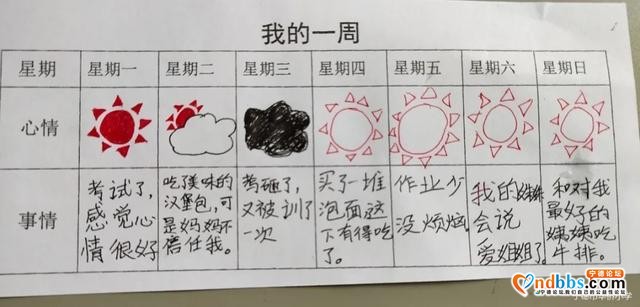 我的一周
星期 星期一 星期二 星期三 星期四 星期五 星期六 星期日
心情
事情
考试了,
感觉心
情很好
吃美味的
汉堡包,可
是妈妈不
信任我。
考砸了,
又被训了
一次
买了一堆
泡面这
下有得吃
了。
作业少
没烦恼
我的妹妹
会说
爱姐姐了。
和对我
最好的
姨姨吃
牛排。
宁德论坛
ndbbs.com